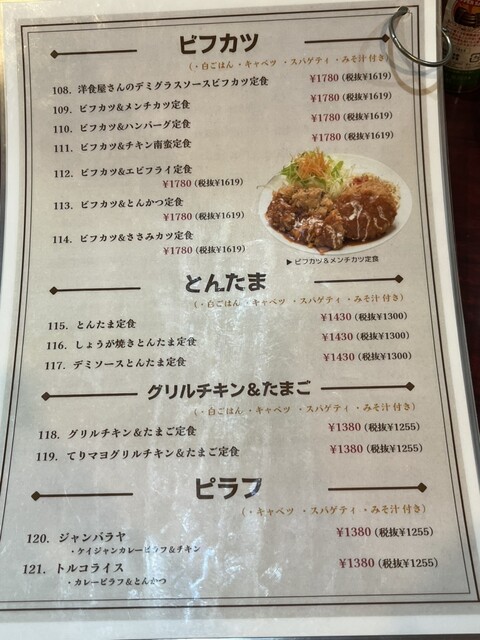 ビフカツ
(・白ごはん ・キャベツ ・スパゲティ ・みそ汁付き)
108. 洋食屋さんのデミグラスソースビフカツ定食 ¥1780 (税抜¥1619)
109. ビフカツ&メンチカツ定食 ¥1780 (税抜¥1619)
110. ビフカツ&ハンバーグ定食 ¥1780 (税抜¥1619)
111. ビフカツ&チキン南蛮定食 ¥1780 (税抜¥1619)
112. ビフカツ&エビフライ定食
¥1780 (税抜¥1619)
113. ビフカツ&とんかつ定食
¥1780 (税抜¥1619)
114. ビフカツ&ささみカツ定食
¥1780 (税抜¥1619)
▶ビフカツ&メンチカツ定食
とんたま
(・白ごはん ・キャベツ ・スパゲティ ・みそ汁付き)
115. とんたま定食 ¥1430 (税抜¥1300)
116. しょうが焼きとんたま定食 ¥1430 (税抜¥1300)
117. デミソースとんたま定食 ¥1430 (税抜¥1300)
グリルチキン&たまご
(・白ごはん ・キャベツ ・スパゲティ ・みそ汁付き)
118. グリルチキン&たまご定食 ¥1380 (税抜¥1255)
119. てりマヨグリルチキン&たまご定食 ¥1380 (税抜¥1255)
ピラフ
(・キャベツ ・スパゲティ ・みそ汁付き)
120. ジャンバラヤ ¥1380 (税抜¥1255)
・ケイジャンカレーピラフ&チキン
121. トルコライス ¥1380 (税抜¥1255)
・カレーピラフ&とんかつ